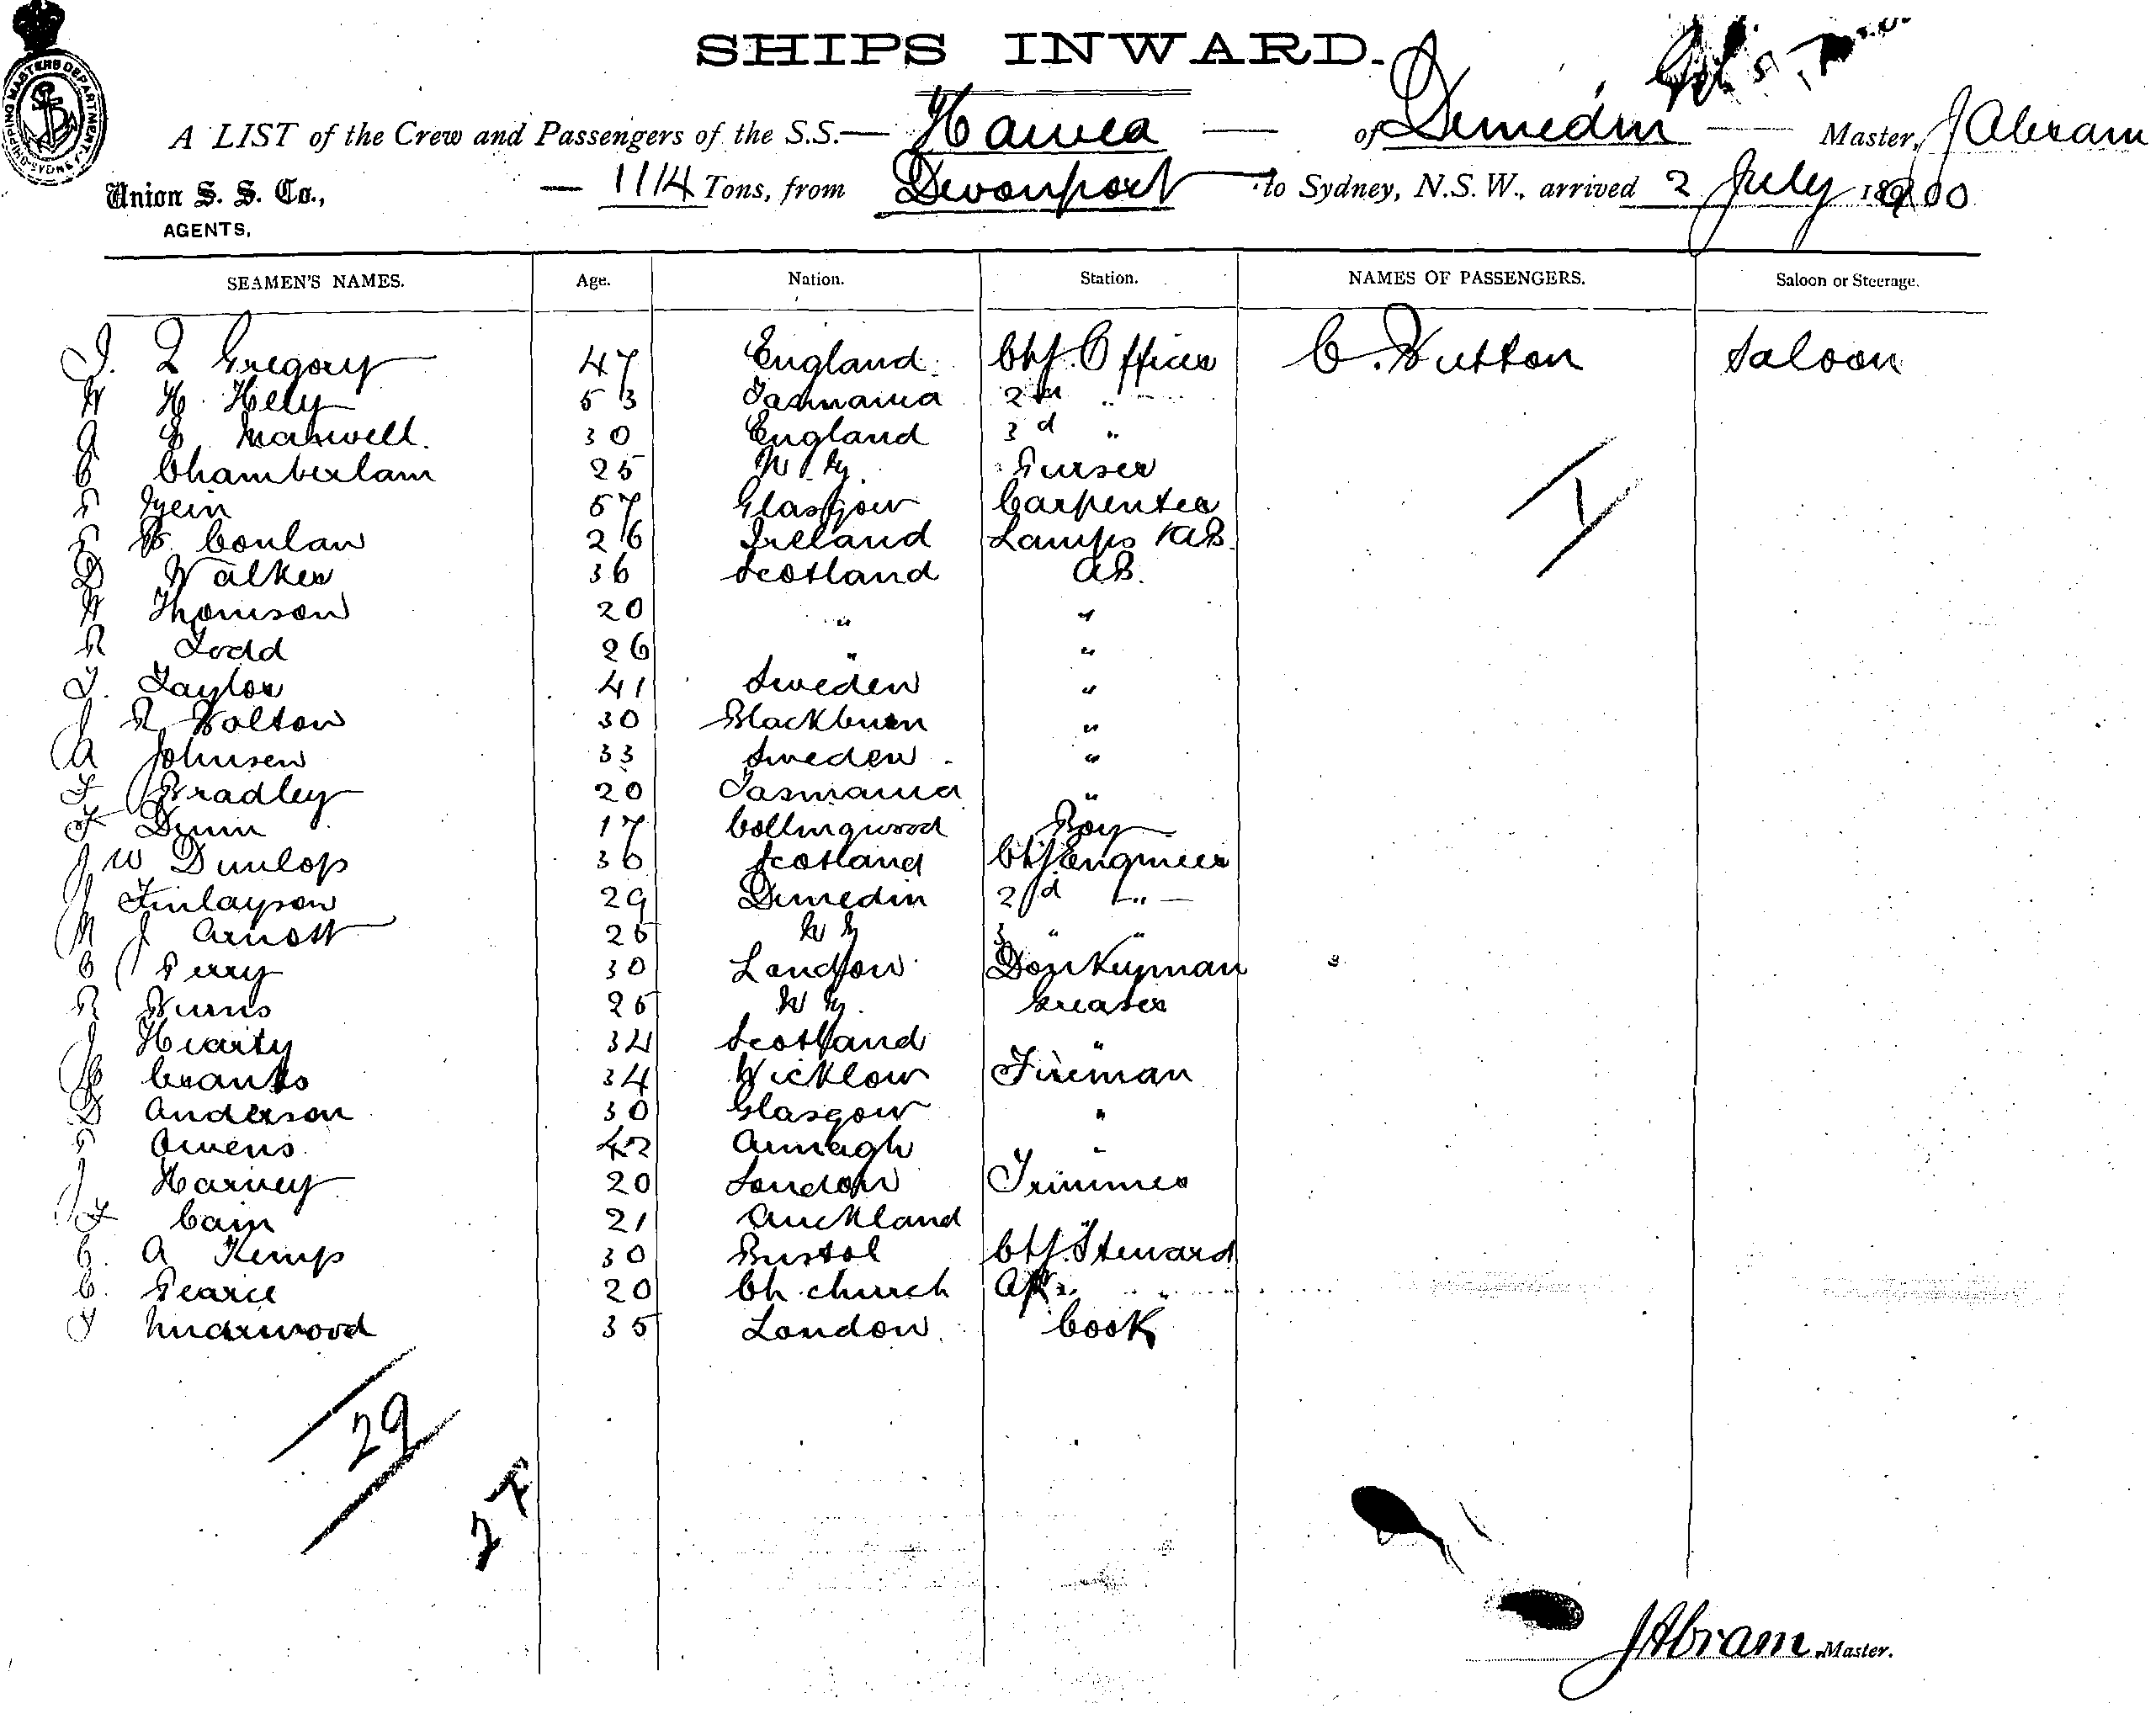 SHIPS INWARD.
SHIPPING MASTERS DEPARTMENT SYDNEY
A LIST of the Crew and Passengers of the S.S. — Hawea — of Dunedin — Master, J Abram
Union S. S. Co., — 1114 Tons, from Devonport to Sydney, N.S.W., arrived 2 July 1900
AGENTS,
SEAMEN'S NAMES. Age. Nation. Station. NAMES OF PASSENGERS. Saloon or Steerage.
Gregory 47 England Chf. Officer C. Hutton Saloon
W H. Hely 53 Tasmania 2nd "
A E Maxwell. 30 England 3d "
C Chamberlain 25 N Z. Purser 1
P 57 Glasgow Carpenter
P B. Conlan 26 Ireland Lamps & AB.
D Walker 36 Scotland AB.
W Thomson 20 " "
R Todd 26 " "
T. Taylor 41 Sweden "
J R Bolton 30 Blackburn "
A Johnsen 33 Sweden "
F Bradley 20 Tasmania "
F Dunn 17 Collingwood Boy
J W Dunlop 36 Scotland Chf Engineer
J Finlayson 29 Dunedin 2d "
J Arnott 25 N Z 3 " "
C Perry 30 London Donkeyman
R Burns 25 N Z. Greaser
J Hearty 34 Scotland "
Cranks 34 Wicklow Fireman
D Anderson 30 Glasgow "
P Owens 42 Armagh "
J Harvey 20 London Trimmer
F Cain 21 Auckland
C. A Kemp 30 Bristol Chf. Steward
C. Pearce 20 Ch. church
Underwood 35 London Cook
29
J Abram Master.